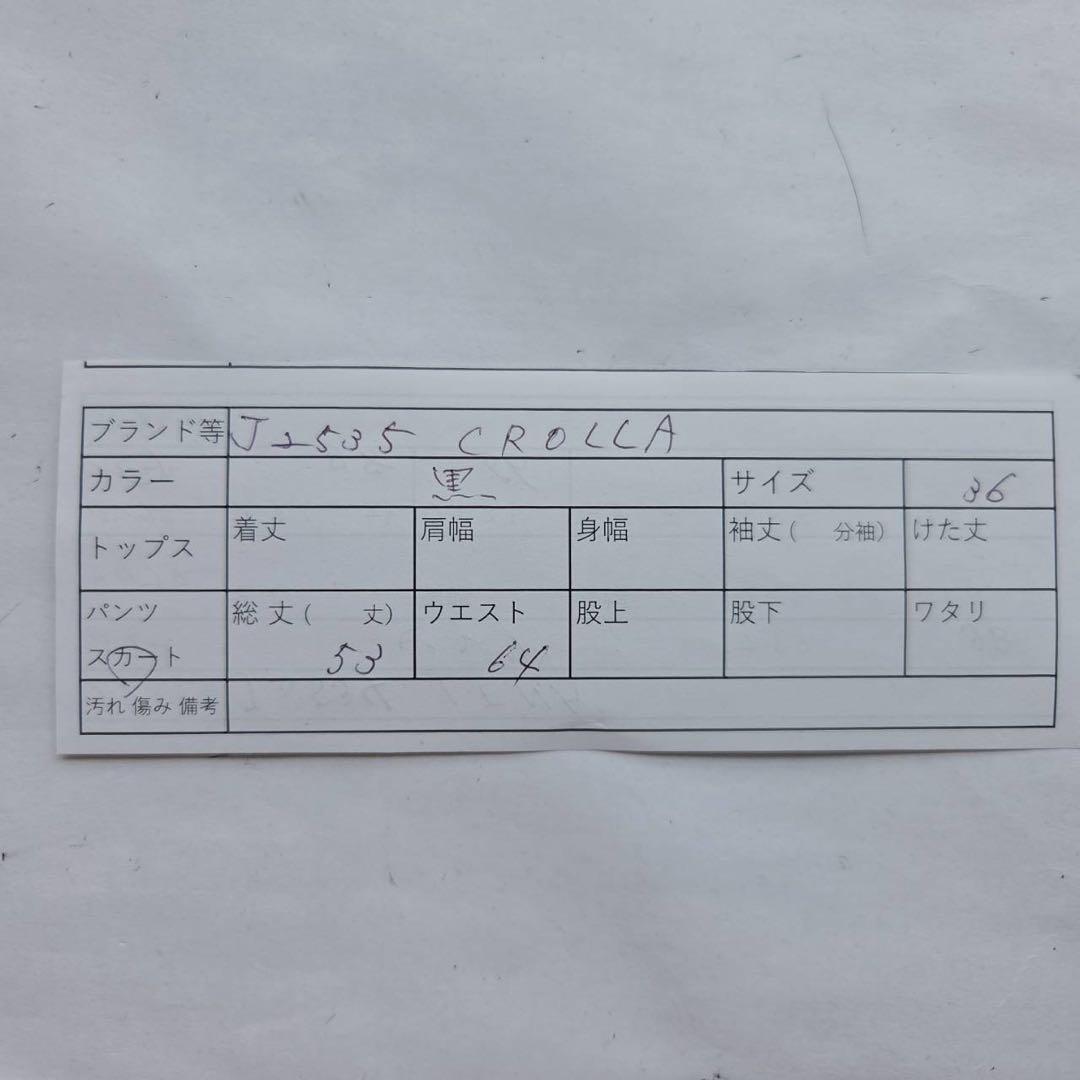 ブランド等 J2535 CROLLA
カラー 黒 サイズ 36
トップス 着丈 肩幅 身幅 袖丈( 分袖) けた丈
パンツ 総丈( 丈) ウエスト 股上 股下 ワタリ
スカート 53 64
汚れ 傷み 備考